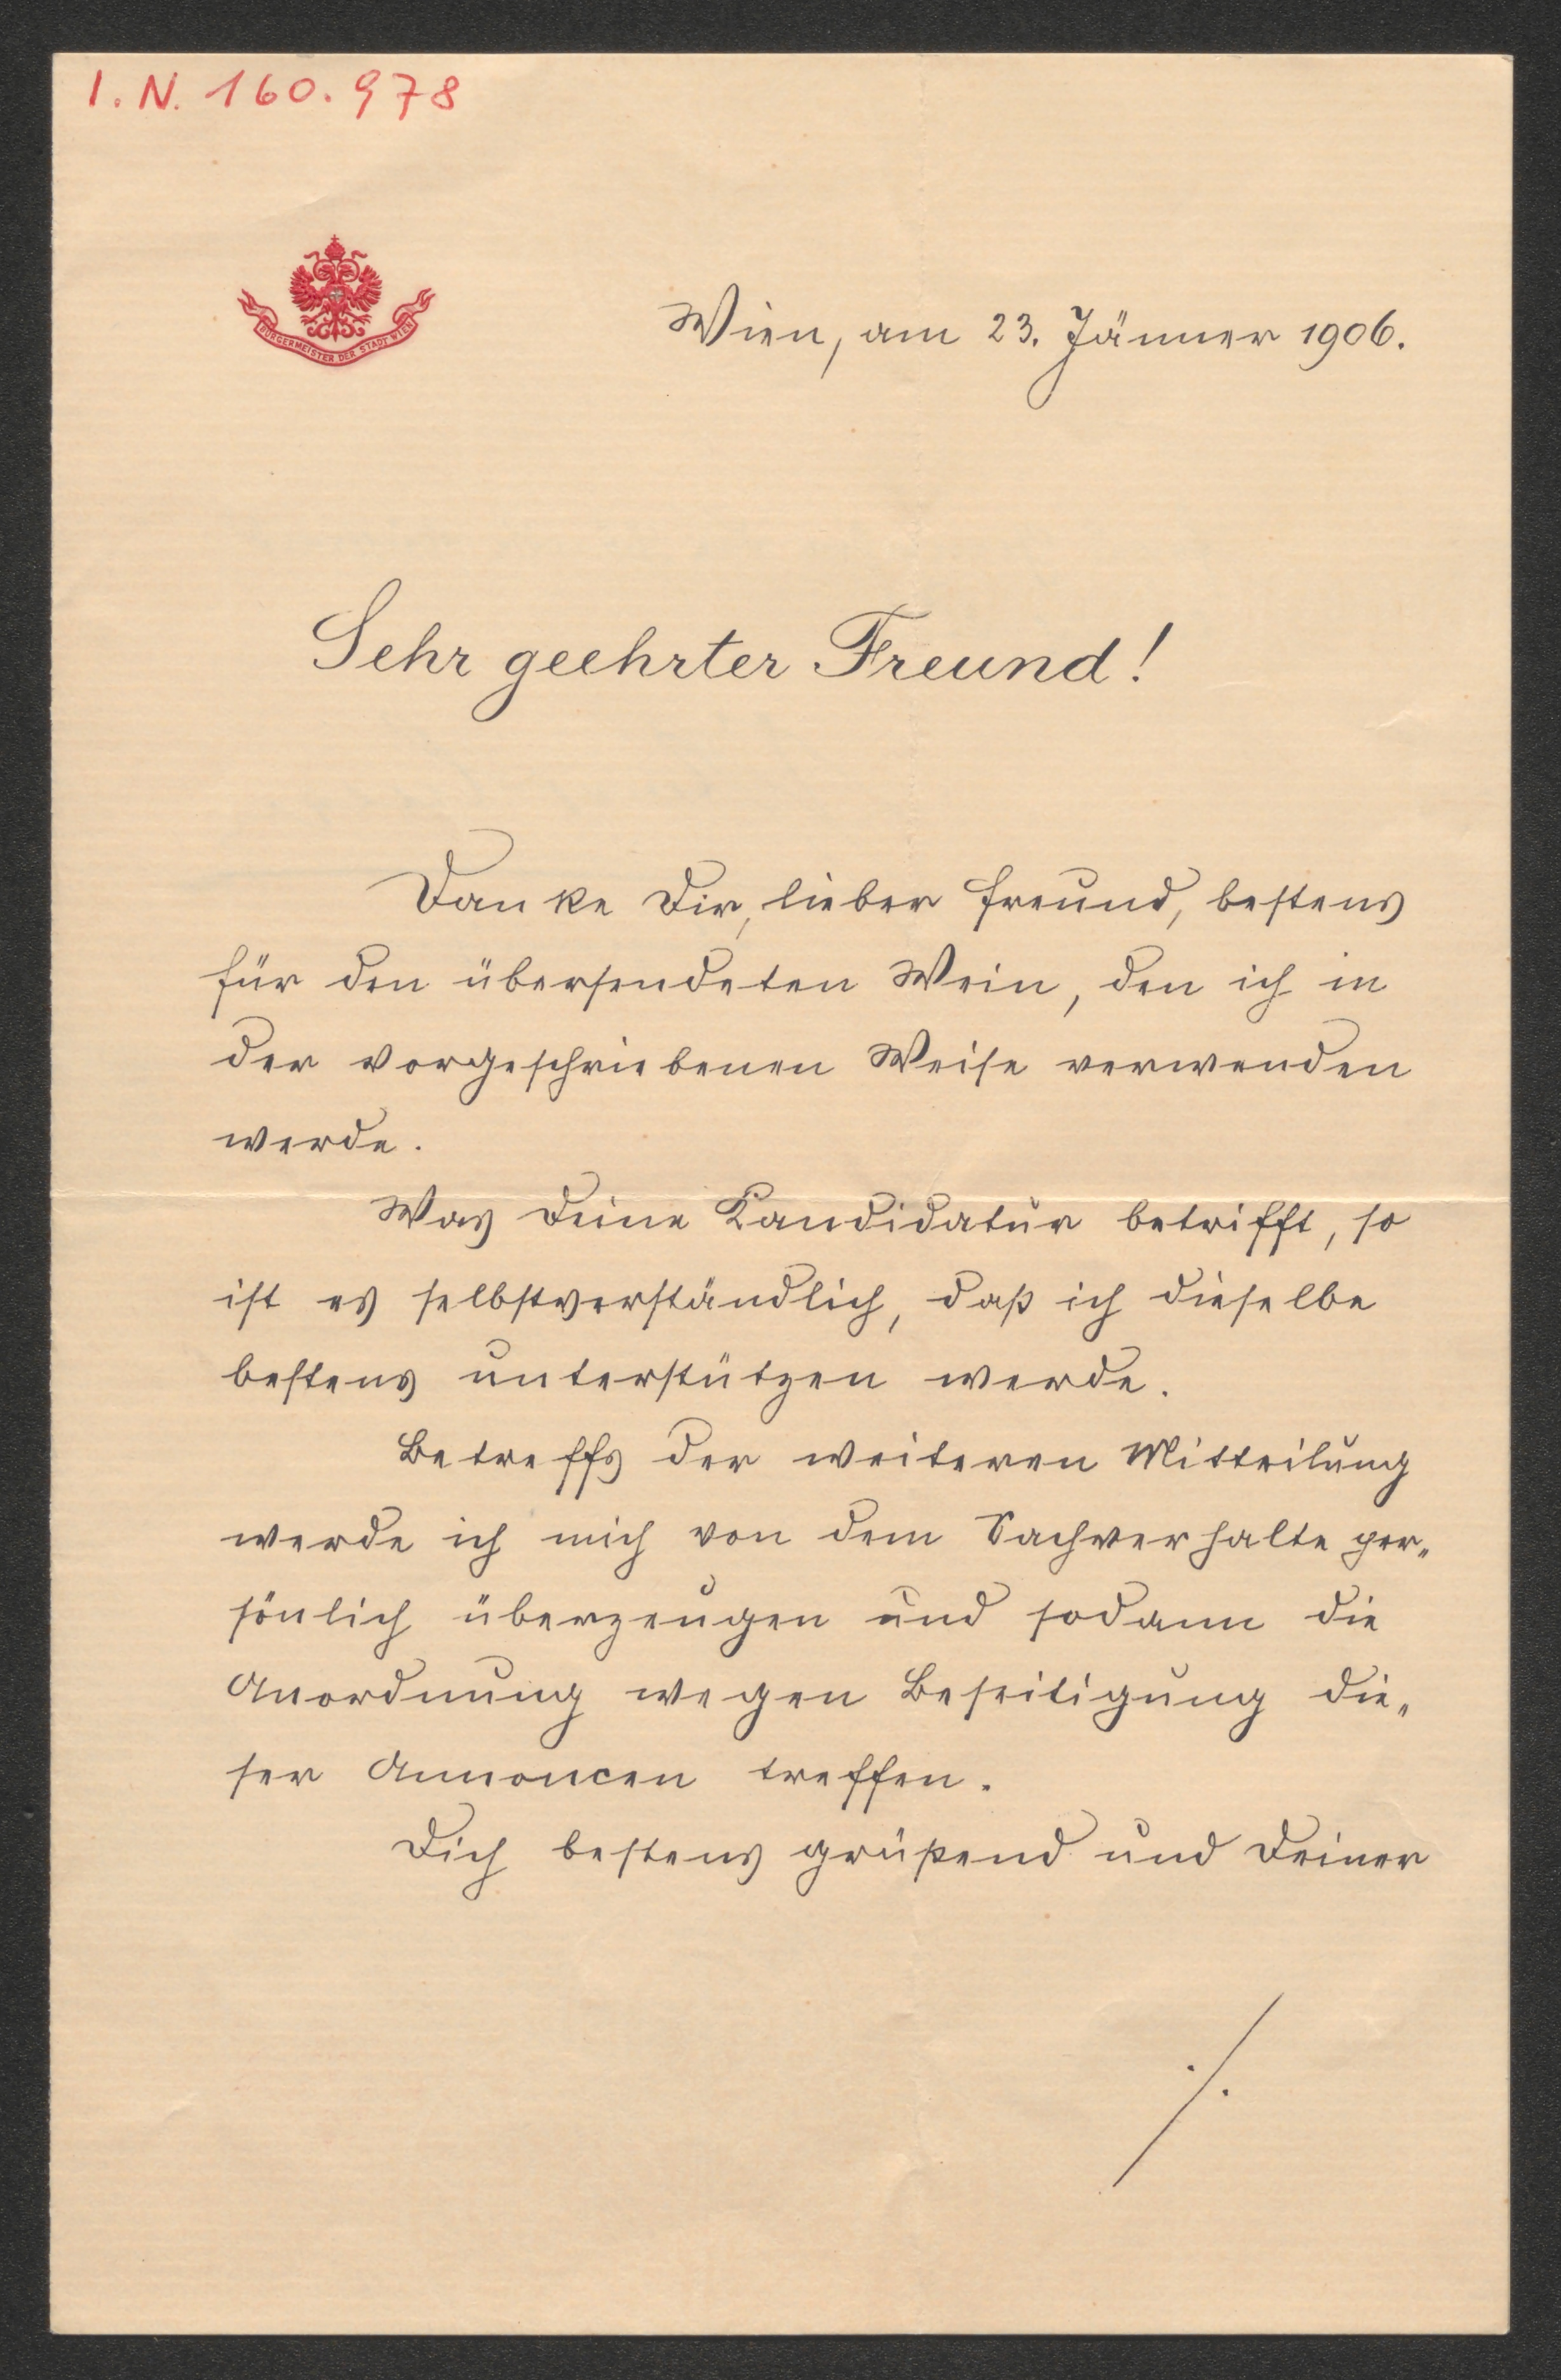 I. N. 160.978
BÜRGERMEISTER DER STADT WIEN
Wien, am 23. Jänner 1906.
Sehr geehrter Freund!
Danke Dir, lieber Freund, bestens
für den übersendeten Wein, den ich in
der vorgeschriebenen Weise verwenden
werde.
Was Deine Kandidatur betrifft, so
ist es selbstverständlich, daß ich dieselbe
bestens unterstützen werde.
Betreffs der weiteren Mitteilung
werde ich mich von dem Sachverhalte per„
sönlich überzeugen und sodann die
Anordnung wegen Beseitigung die„
ser Annoncen treffen.
Dich bestens grüßend und Deiner
./.